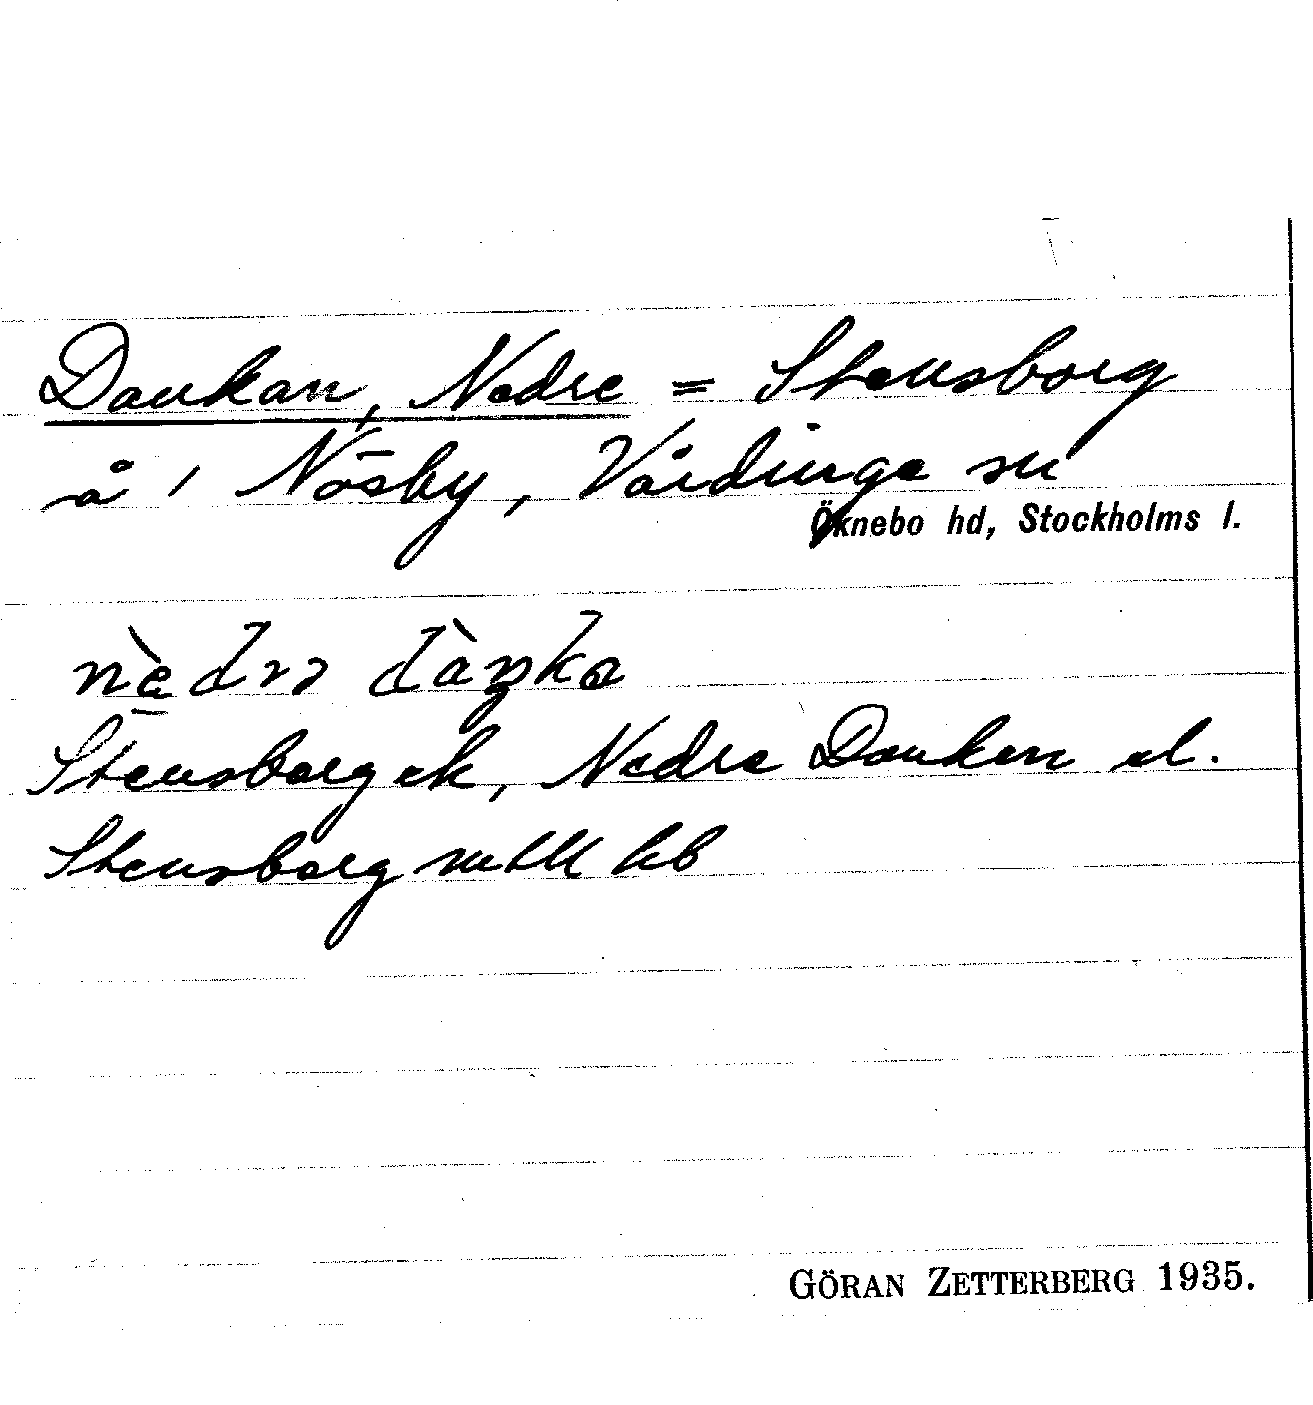 Dankan, Nedre = Stensborg
å 1 Näsby, Vårdinge sn
Öknebo hd, Stockholms l.
Stensborg ek, Nedre Dankan el.
Stensborg mtll hb
GÖRAN ZETTERBERG 1935.